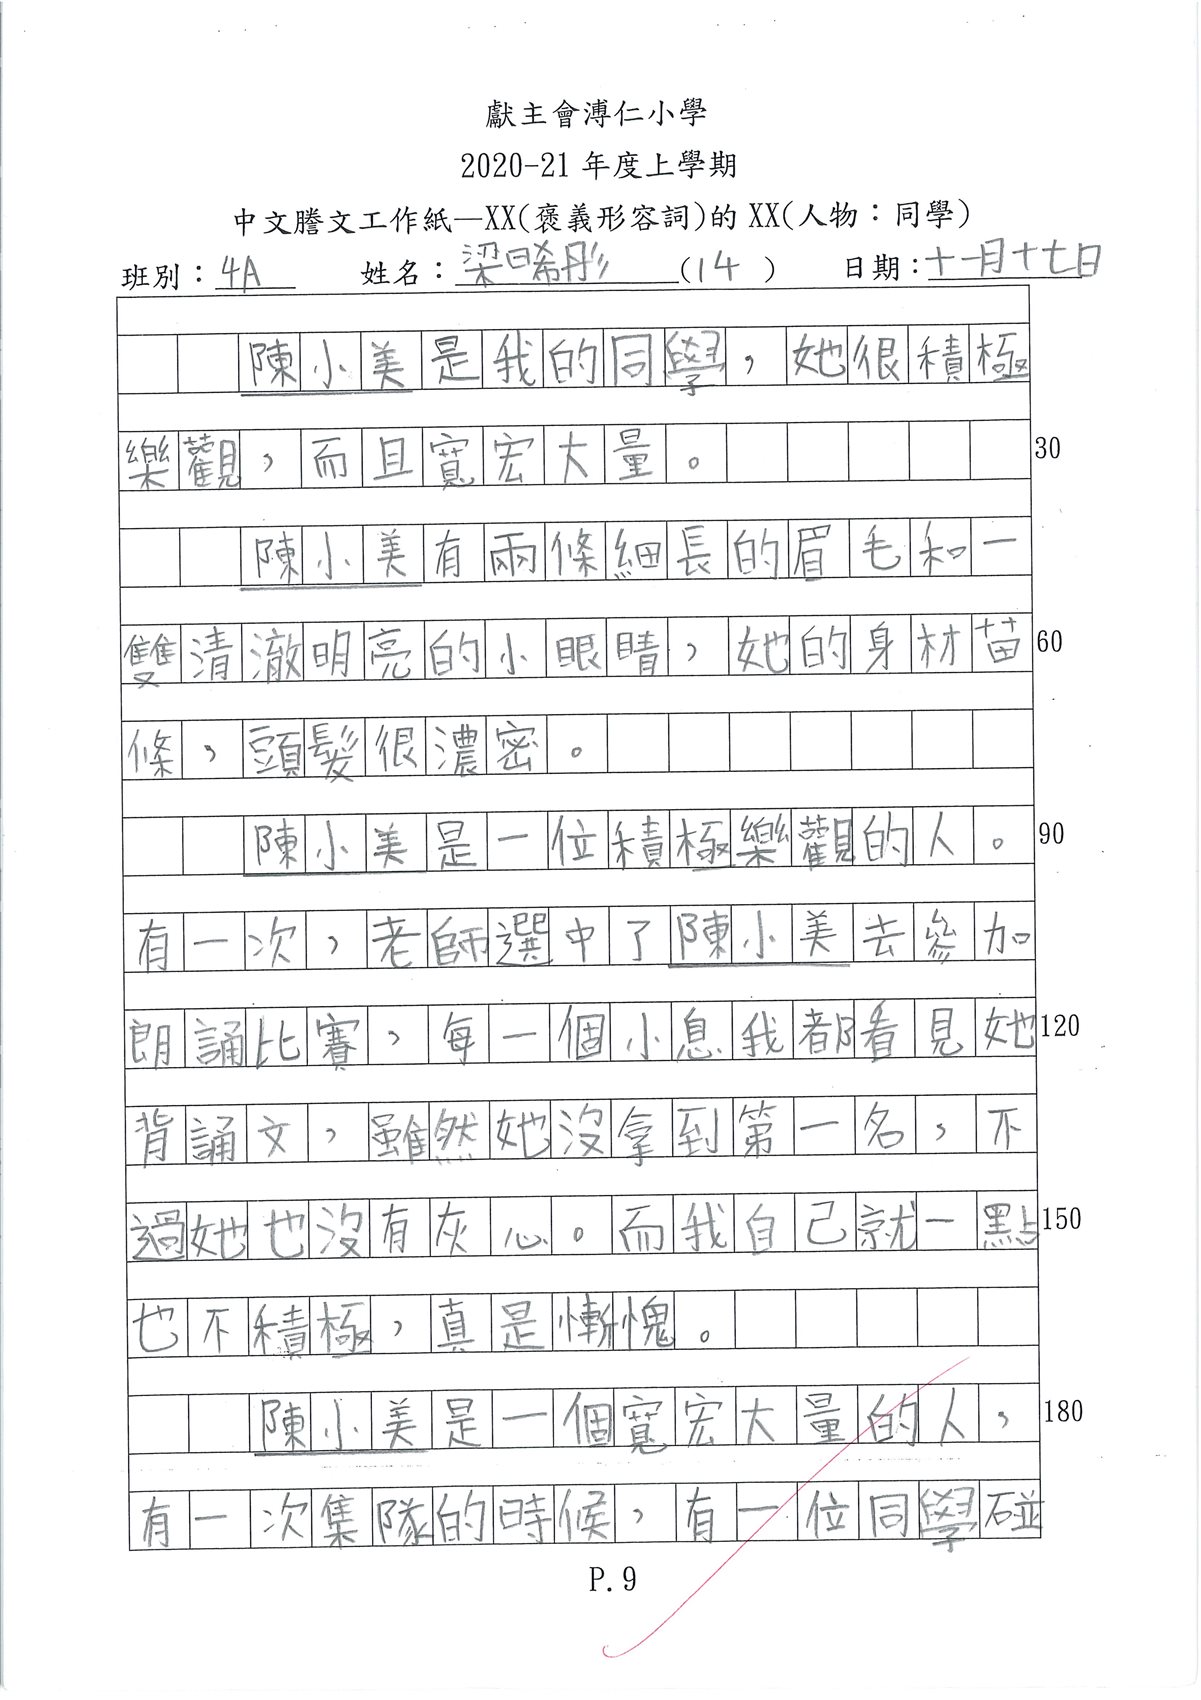 獻主會溥仁小學
2020-21 年度上學期
中文謄文工作紙—XX(褒義形容詞)的 XX(人物：同學)
班別：4A 姓名：梁晞彤 (14) 日期：十一月十七日
陳小美是我的同學，她很積極
樂觀，而且寬宏大量。 30
陳小美有兩條細長的眉毛和一
雙清澈明亮的小眼睛，她的身材苗 60
條，頭髮很濃密。
陳小美是一位積極樂觀的人。 90
有一次，老師選中了陳小美去參加
朗誦比賽，每一個小息我都看見她 120
背誦文，雖然她沒拿到第一名，不
過她也沒有灰心。而我自己就一點 150
也不積極，真是慚愧。
陳小美是一個寬宏大量的人， 180
有一次集隊的時候，有一位同學碰
P.9